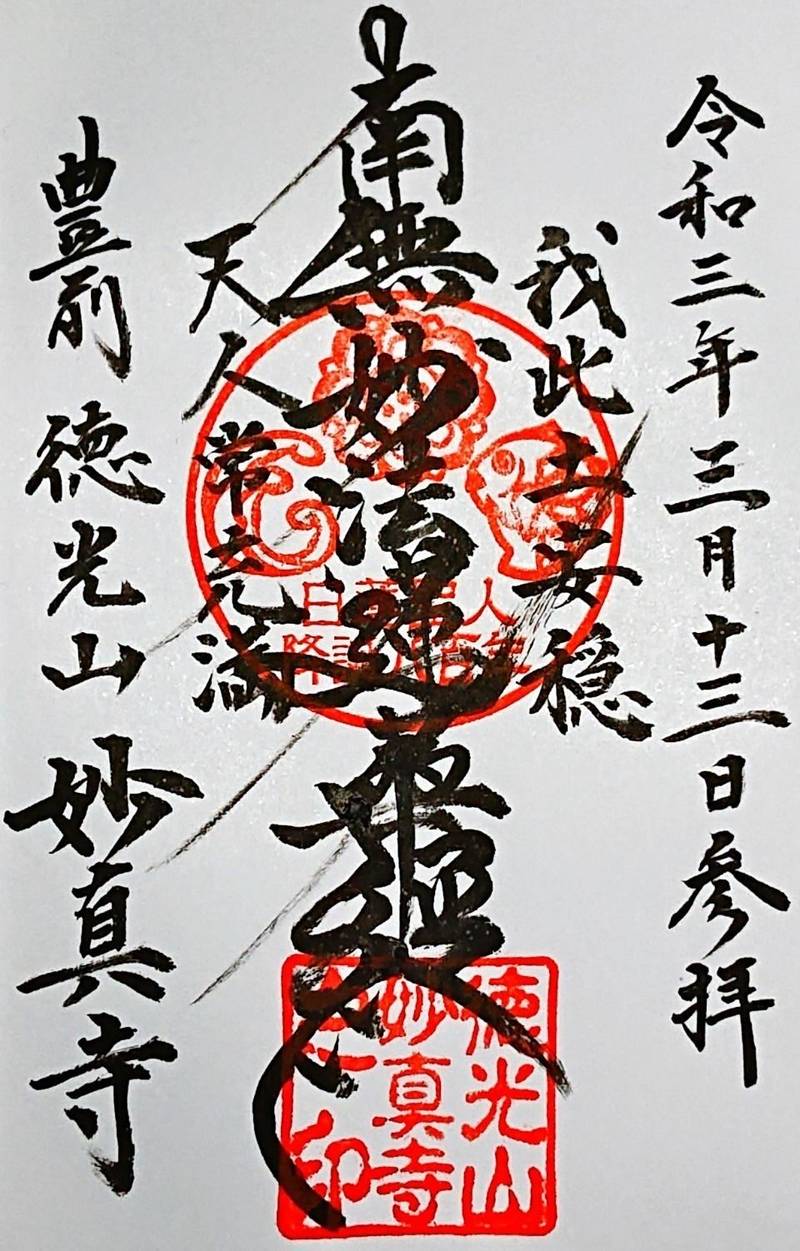 令和三年三月十三日参拝
我此土安穏
南無妙法蓮華経
天人常充満
豊前 徳光山 妙真寺
徳光山
妙真寺
之印